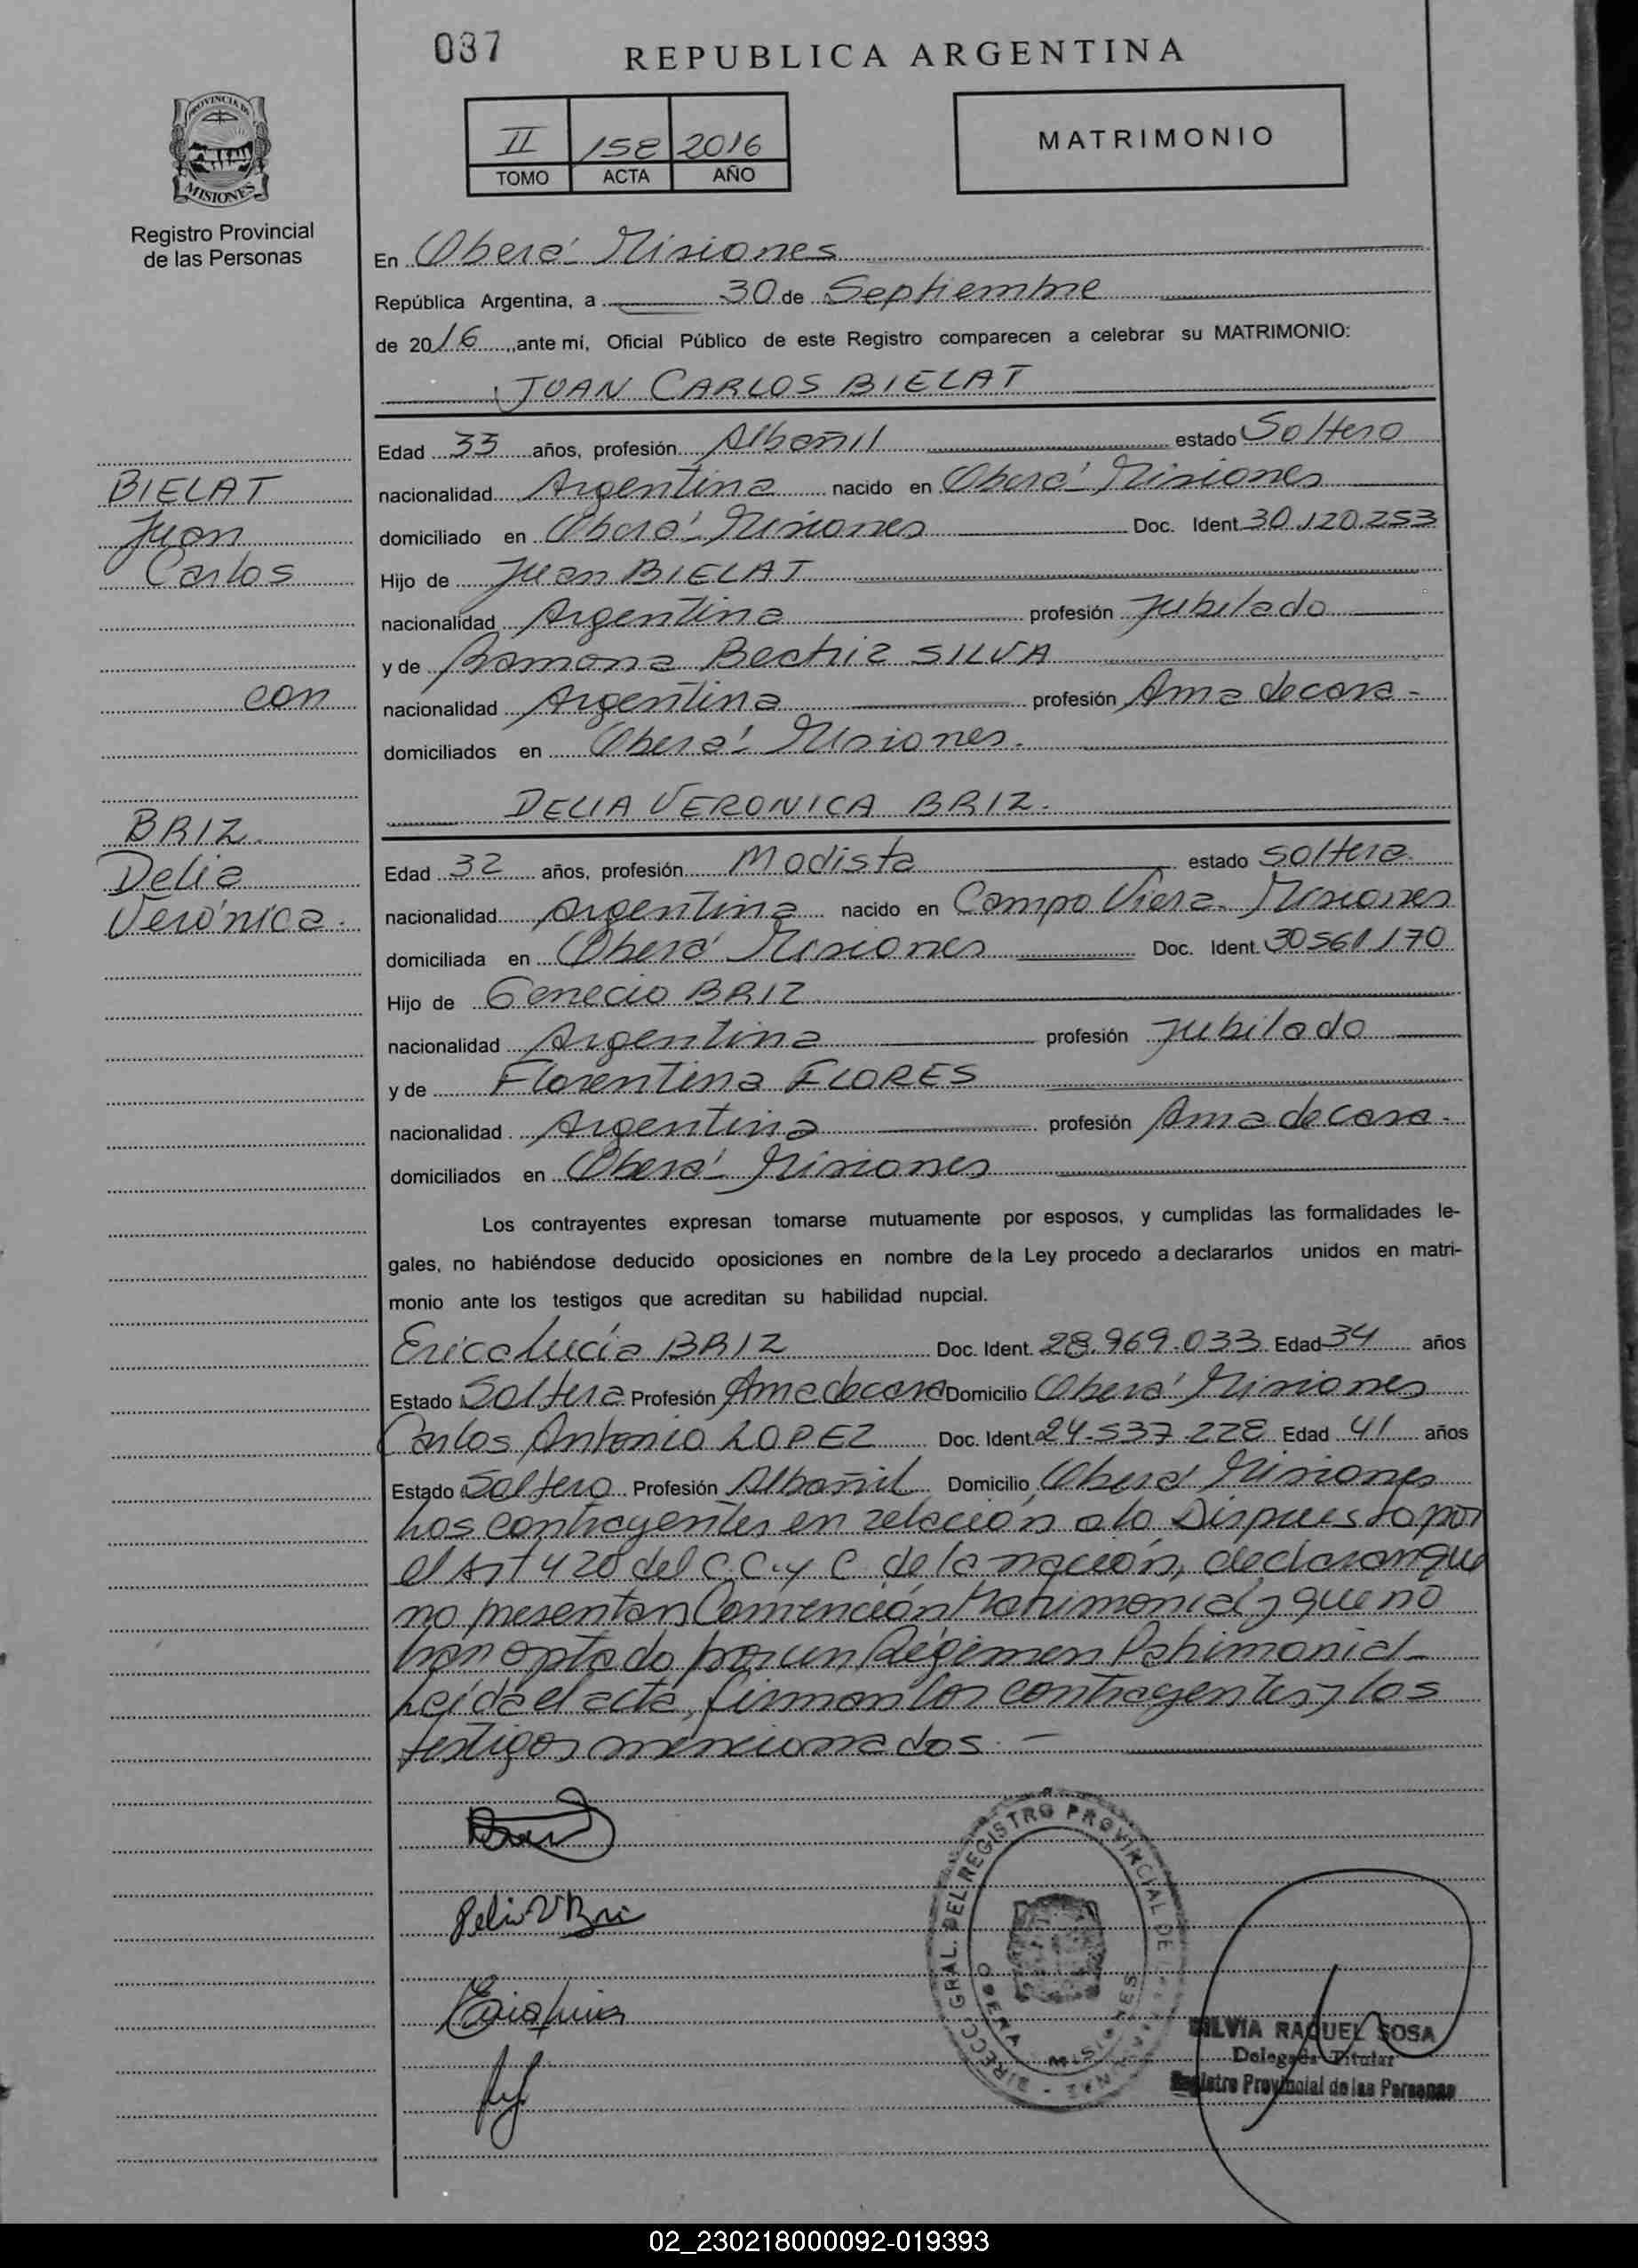 037
REPUBLICA ARGENTINA
II 158 2016
TOMO ACTA AÑO
MATRIMONIO
PROVINCIA DE
MISIONES
Registro Provincial
de las Personas
En Oberá - Misiones
República Argentina, a 30 de Septiembre
de 2016, ante mí, Oficial Público de este Registro comparecen a celebrar su MATRIMONIO:
JUAN CARLOS BIELAT
Edad 33 años, profesión Albañil estado Soltero
BIELAT
Juan
Carlos
con
BRIZ
Delia
Verónica.
nacionalidad Argentina nacido en Oberá - Misiones
domiciliado en Oberá - Misiones Doc. Ident 30.120.253
Hijo de Juan BIELAT
nacionalidad Argentina profesión Jubilado
y de Ramona Beatriz SILVA
nacionalidad Argentina profesión Ama de casa -
domiciliados en Oberá - Misiones.
DELIA VERONICA BRIZ.
Edad 32 años, profesión Modista estado Soltera
nacionalidad Argentina nacido en Campo Viera. Misiones
domiciliada en Oberá Misiones Doc. Ident. 30561170
Hijo de Genecio BRIZ
nacionalidad Argentina profesión Jubilado
y de Florentina FLORES
nacionalidad Argentina profesión Ama de casa -
domiciliados en Oberá - Misiones
Los contrayentes expresan tomarse mutuamente por esposos, y cumplidas las formalidades le-
gales, no habiéndose deducido oposiciones en nombre de la Ley procedo a declararlos unidos en matri-
monio ante los testigos que acreditan su habilidad nupcial.
Erica Lucía BRIZ Doc. Ident. 28.969.033 Edad 34 años
Estado Soltera Profesión Ama de casa Domicilio Oberá Misiones
Carlos Antonio LOPEZ Doc. Ident 24.537.228 Edad 41 años
Estado Soltero Profesión Albañil Domicilio Oberá Misiones
Los contrayentes en relación a lo Dispuesto por
el Art 420 del C.C. y C. de la nación, declaran que
no presentan Convención Matrimonial y que no
han optado por un Régimen Patrimonial -
Leída el acta, firman los contrayentes y los
testigos mencionados. -
Delia V Bri
DIRECC. GRAL. DEL REGISTRO PROVINCIAL DE
OBERA MISIONES
SILVIA RAQUEL SOSA
Delegada Titular
Registro Provincial de las Personas
02_230218000092-019393